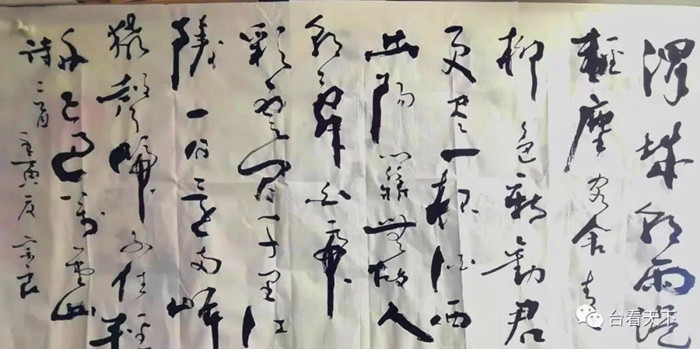 渭城朝雨浥
輕塵客舍青
柳色新勸君
更盡一杯酒西
出陽關無故人
朝辭白帝
彩雲間千里江
陵一日還兩岸
猿聲啼不住輕
舟已過萬重山
詩二首 壬寅夏 宗良
台看天下